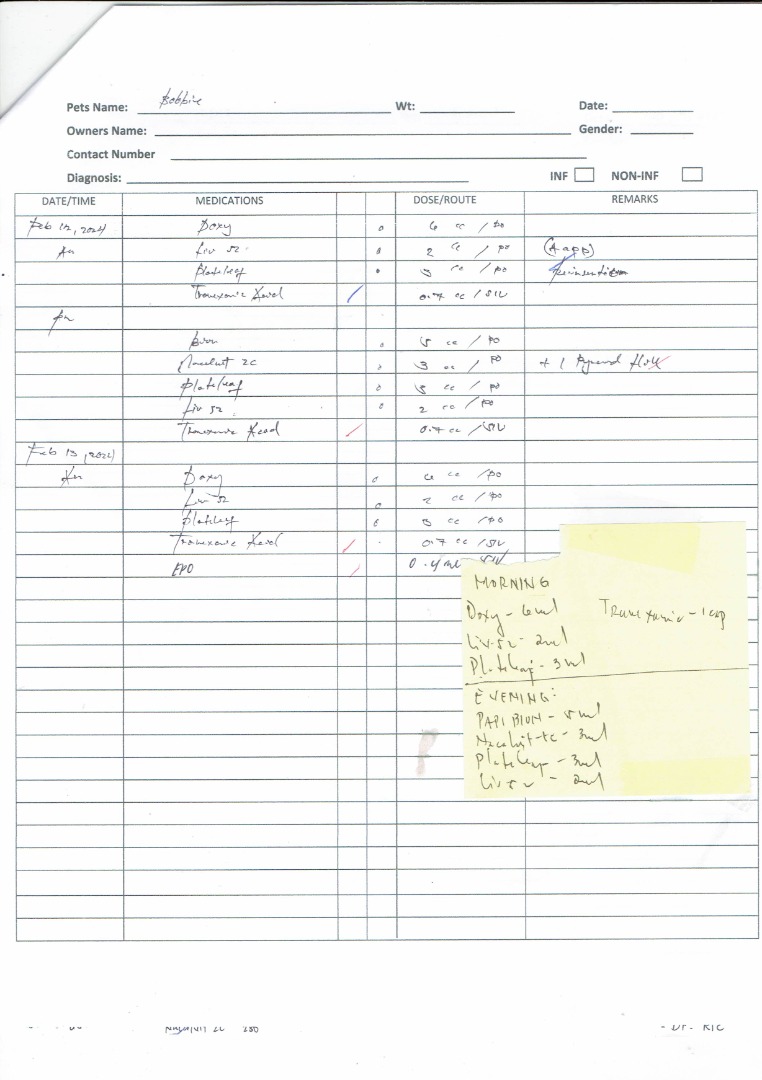 Pets Name: Bobbie Wt: Date:
Owners Name: Gender:
Contact Number
Diagnosis: INF NON-INF
DATE/TIME MEDICATIONS DOSE/ROUTE REMARKS
Feb 12, 2024 Doxy 6 cc / po
Am Liv 52 2 cc / po
Plateleaf 3 cc / po
Tranexamic Acid 0.7 cc / SIV
pm
Bion 5 cc / po
3 cc / po + 1
Plateleaf 3 cc / po
Liv 52 2 cc / po
Tranexamic Acid 0.7 cc / SIV
Feb 13, 2024
Am Doxy 6 cc / po
Liv 52 2 cc / po
Plateleaf 3 cc / po
Tranexamic Acid 0.7 cc / SIV
EPO 0.4 ml SIV
MORNING
Doxy - 6ml Tranexamic - 1cap
Liv-52 - 2ml
Plateleaf - 3ml
EVENING:
PAPI BION - 5ml
- 3ml
Plateleaf - 3ml
Liv 52 - 2ml